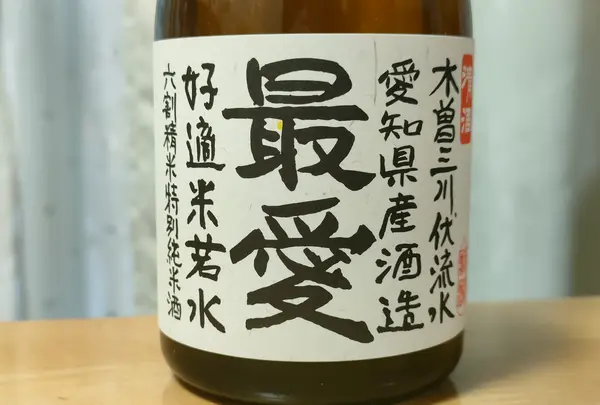 清酒
木曽三川伏流水
愛知県産酒造
最愛
好適米若水
六割精米特別純米酒